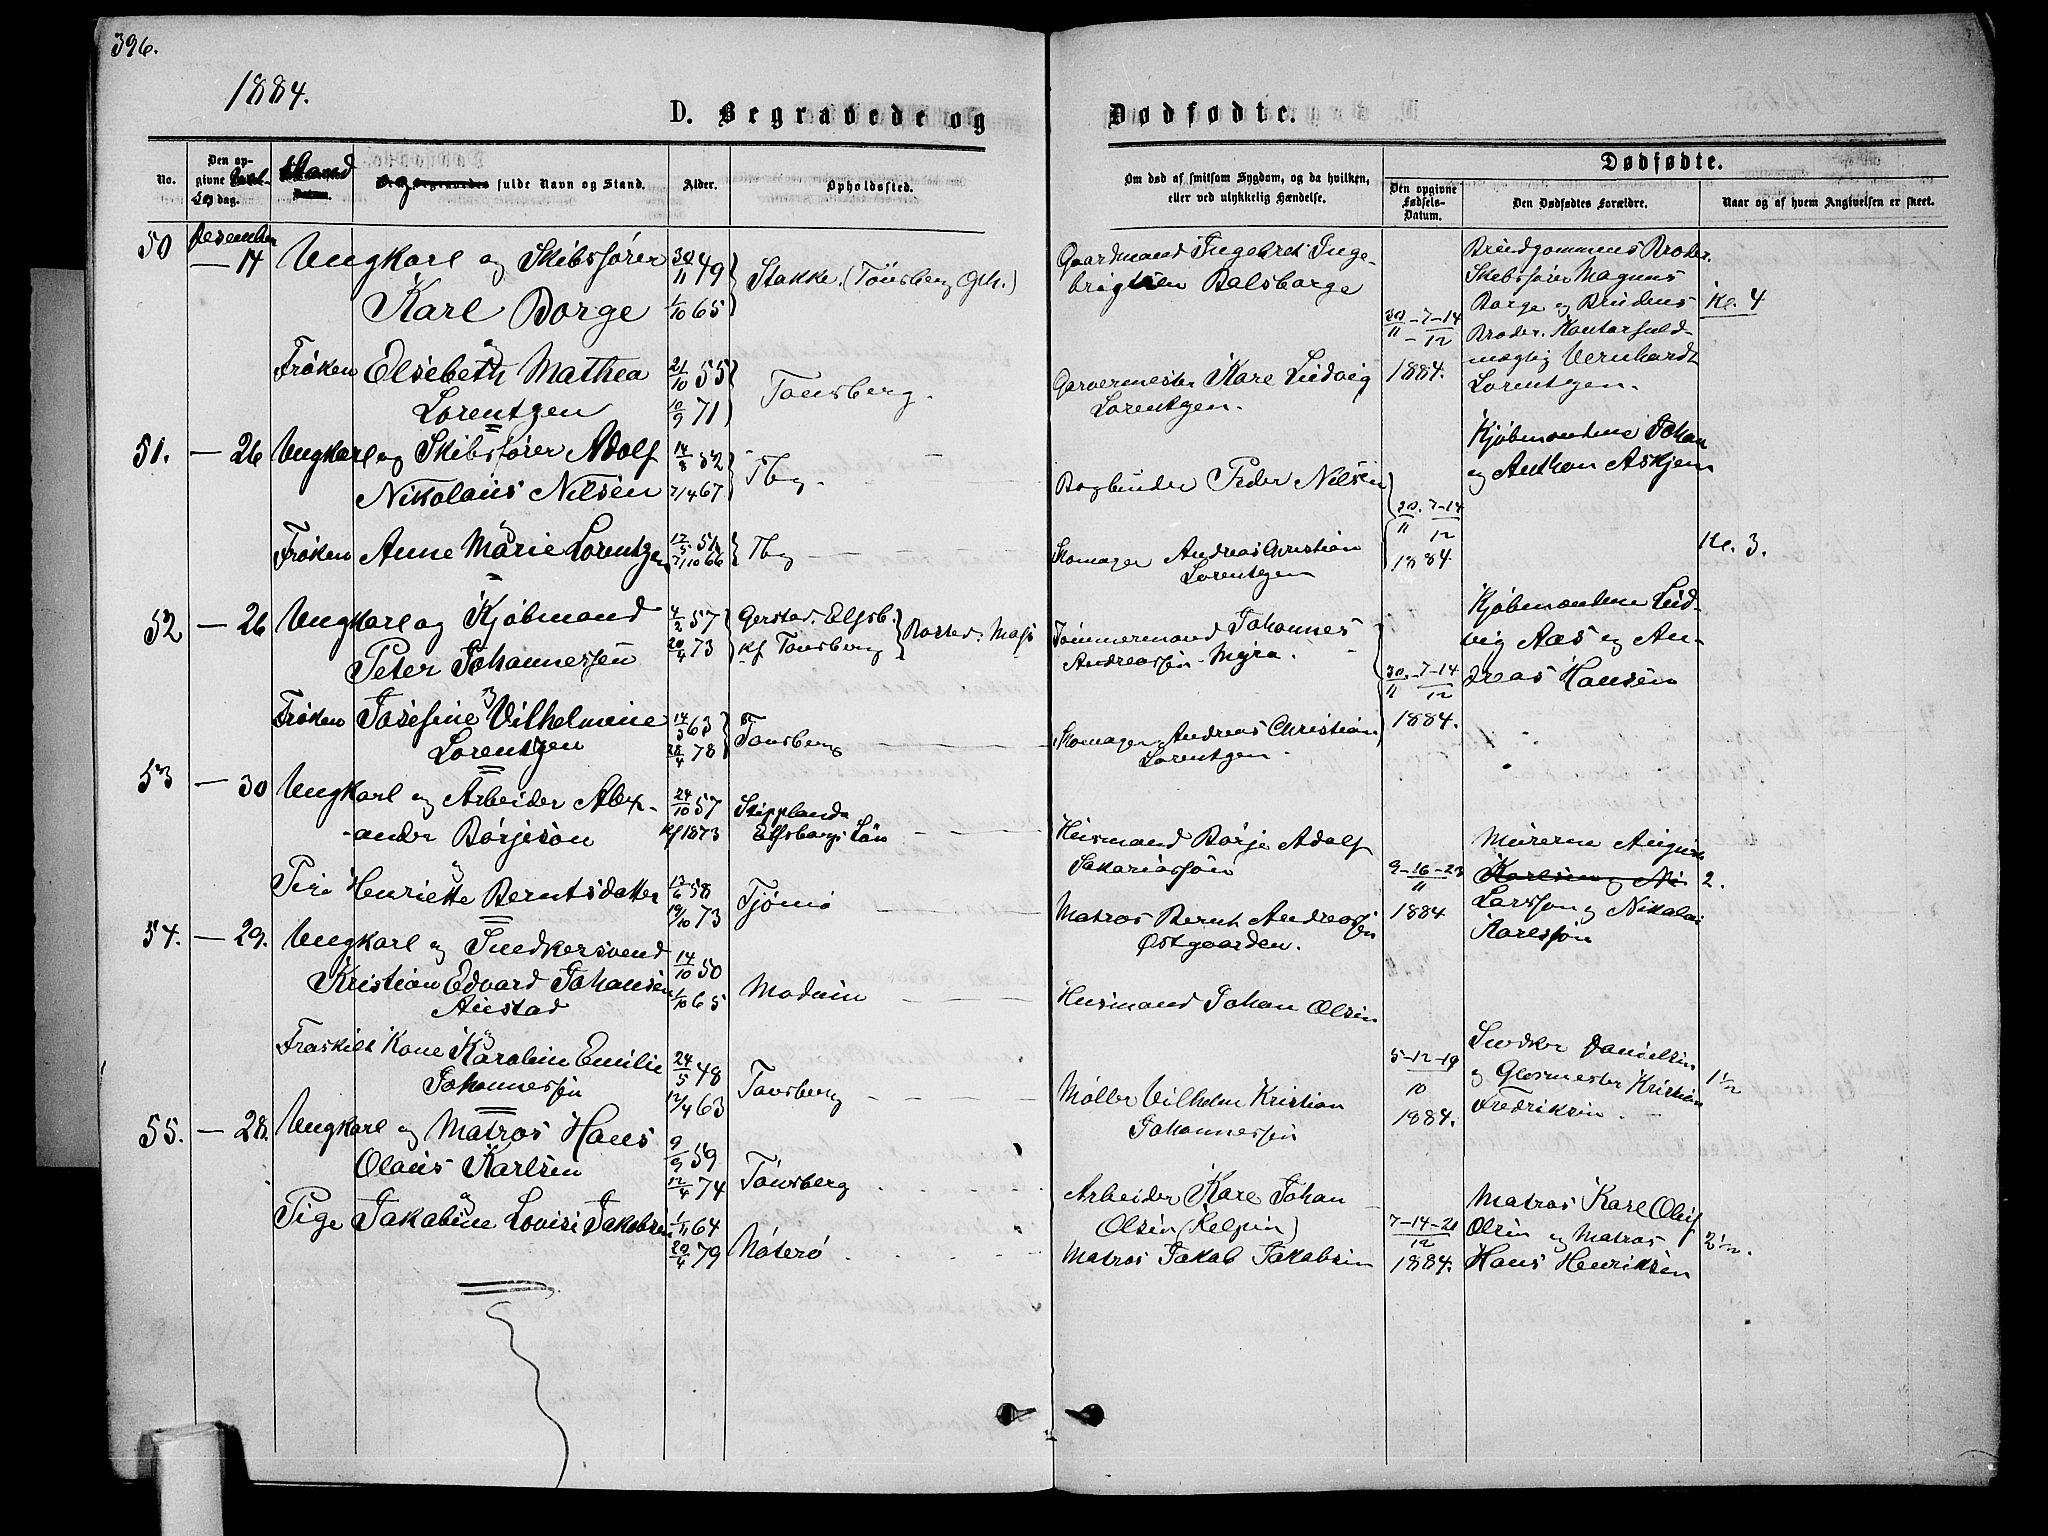 396.
1884.
D. Begravede og
Dødfødte.
No.
Den op-
givne
dag.
Stand
Datum.
De Begravedes fulde Navn og Stand.
Alder.
Opholdssted.
Om død af smitsom Sygdom, og da hvilken,
eller ved ulykkelig Hændelse.
Dødfødte.
Den opgivne
Fødsels-
Datum.
Den Dødfødtes Forældre.
Naar og af hvem Angivelsen er skeet.
50 Desember
— 14 Ungkarl og Skibsfører
Karl Borge
30/11 49
1/10 65
Stokke. (Tönsberg Gth.)
Gaardmand Ingebret Inge-
brigtsen Bolsborge
30/11 - 7 - 14/12
1884.
Brudgommens Broder.
Skibsfører Magnus
Borge og Brudens
Broder, Kontorfuld-
mægtig Vernhardt
Lorentzen.
Kl. 4
Frøken Elsebeth Mathea
Lorentzen
21/10 55
10/9 71
Tønsberg.
Garvermester Karl Ludvig
Lorentzen.
51. — 26 Ungkarl og Skibsfører Adolf
Nikolaus Nilsen
14/8 52
7/4 67
Tbg. —
Bogbinder Peder Nilsen
30/11. 7-14/12
1884.
Kjøbmændene Johan
og Anthon Askjem
Kl. 3.
Frøken Anne Marie Lorentzen
12/5 51
7/10 66
Tbg —
Skomager Andreas Christian
Lorentzen
52 — 26 Ungkarl og Kjøbmand
Peter Johannessen
4/2 57
20/4 73
Gerstad. Elfsb.
kf Tønsberg
Bosted: Moss
Tømmermand Johannes
Andreassen Myra.
30/11. - 7-14/12
1884.
Kjøbmændene Lud-
vig Aas og An-
dreas Hansen
Frøken Josefine Vilhelmine
Lorentzen
14/3 63
28/4 78
Tønsberg — — —
Skomager Andreas Christian
Lorentzen.
53 — 30 Ungkarl og Arbeider Alex-
ander Börjeson
24/10 57
kf 1873
Skipplanda
Elfsborgs Län — — —
Husmand Börje Adolf
Sakariassön
9-16-23/11
1884
Murerne August
Karlsen og Ni
Larsson og Nikolai
Karlssøn
2.
Pige Henriette Berntsdatter
13/6 58
19/10 73
Tjømø — — —
Matros Bernt Andreassen
Østgaarden.
54. — 29. Ungkarl og Snedkersvend
Kristian Edvard Johansen
Austad
14/10 50
1/10 65
Modum — — —
Husmand Johan Olsen
Fraskilt Kone Karoline Emilie
Johannessen
24/5 48
12/4 63
Tønsberg — — —
Møller Vilhelm Kristian
Johannessen
5-12-19/10
1884.
Snedker Danielsen
og Glasmester Kristian
Fredriksen.
1 1/2
55. — 28. Ungkarl og Matros Hans
Olaus Karlsen
9/9 59
12/4 74
Tønsberg
Arbeider Karl Johan
Olsen
7-14-21/12
1884.
Matros Karl Oluf
Olsen og Matros
Hans Henriksen
2 1/2.
Pige Jakobine Lovise Jakobsen
1/11 64
20/4 79
Nøterø
Matros Jakob Jakobsen